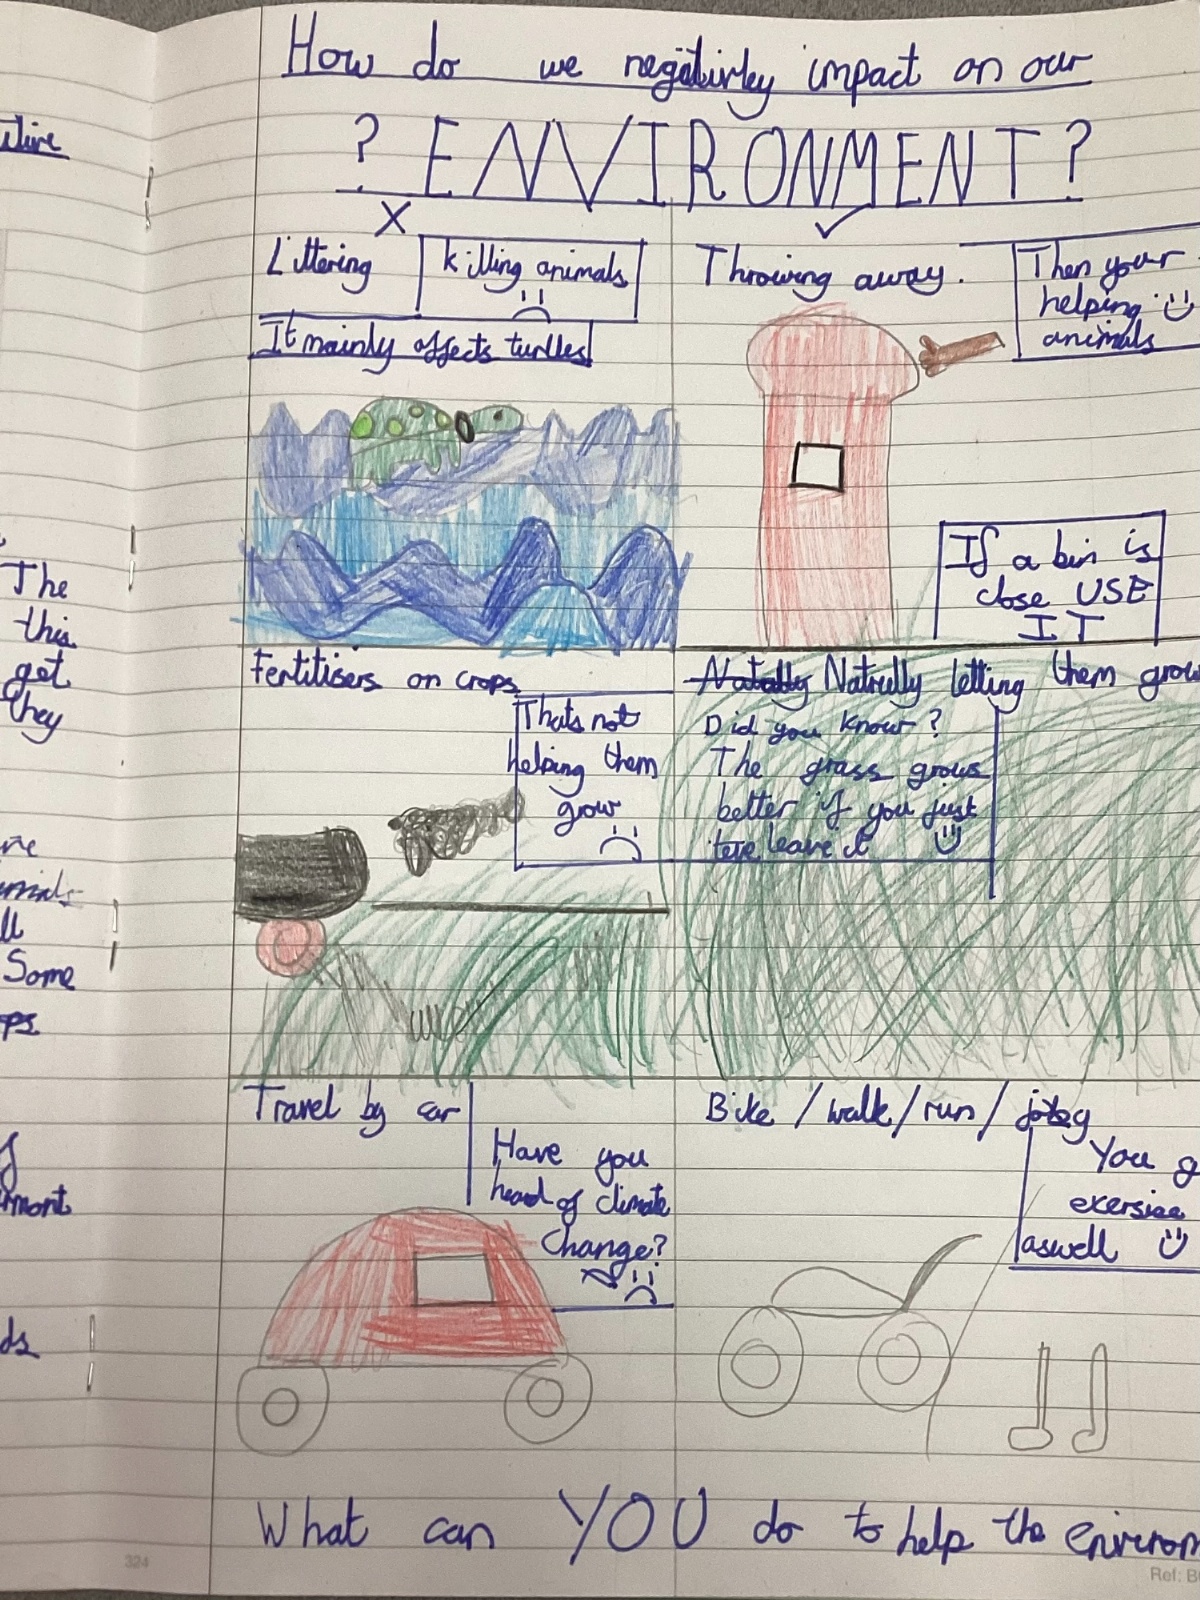 How do we negitivley impact on our
? ENVIRONMENT?
X
✓
Littering
killing animals
It mainly affects turtles
Throwing away.
Then your
helping
animals
If a bin is
close USE
IT
Fertitisers on crops
Thats not
helping them
grow
Natrully letting them grow
Did you know?
The grass grows
better if you just
leave it
Travel by car
Have you
heard of climate
change?
Bike / walk / run / jog
You g
exersise
aswell
What can YOU do to help the environm
The
this
get
they
Some
324
Ref: B